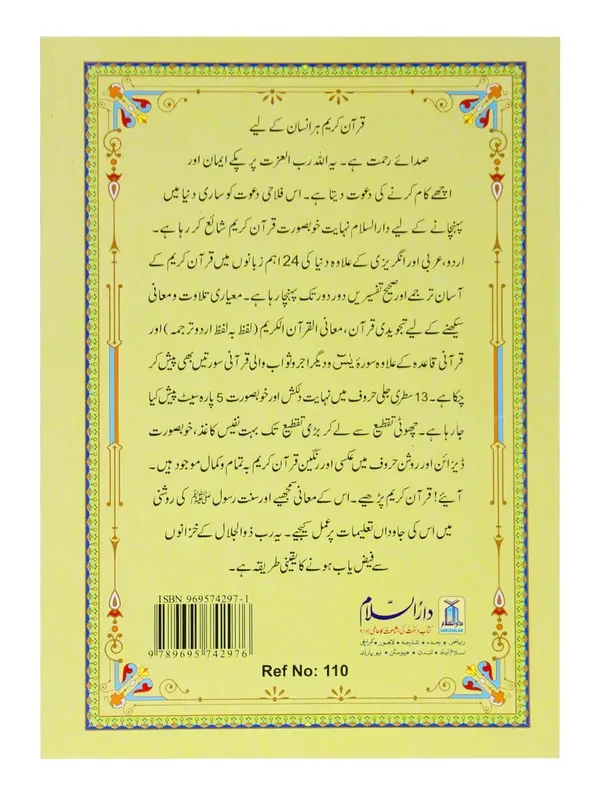 قرآن کریم ہر انسان کے لیے
صدائے رحمت ہے۔ یہ اللہ رب العزت پر پکے ایمان اور
اچھے کام کرنے کی دعوت دیتا ہے۔ اس فلاحی دعوت کو ساری دنیا میں
پہنچانے کے لیے دارالسلام نہایت خوبصورت قرآن کریم شائع کر رہا ہے۔
اردو، عربی اور انگریزی کے علاوہ دنیا کی 24 اہم زبانوں میں قرآن کریم کے
آسان ترجمے اور صحیح تفسیریں دور دور تک پہنچا رہا ہے۔ معیاری تلاوت و معانی
سیکھنے کے لیے تجویدی قرآن، معانی القرآن الکریم (لفظ بہ لفظ اردو ترجمہ) اور
قرآنی قاعدہ کے علاوہ سورۂ یٰسٓ و دیگر اجر و ثواب والی قرآنی سورتیں بھی پیش کر
چکا ہے۔ 13 سطری جلی حروف میں نہایت دلکش اور خوبصورت 5 پارہ سیٹ پیش کیا
جا رہا ہے۔ چھوٹی تقطیع سے لے کر بڑی تقطیع تک بہت نفیس کاغذ، خوبصورت
ڈیزائن اور روشن حروف میں عکسی اور رنگین قرآن کریم بہ تمام و کمال موجود ہیں۔
آئیے! قرآن کریم پڑھیے۔ اس کے معانی سمجھیے اور سنت رسول ﷺ کی روشنی
میں اس کی جاوداں تعلیمات پر عمل کیجیے۔ یہ رب ذوالجلال کے خزانوں
سے فیض یاب ہونے کا یقینی طریقہ ہے۔
ISBN 969574297-1
9 789695 742976
دارالسلام
دارالسلام
DARUSSALAM
کتاب و سنت کی اشاعت کا عالمی ادارہ
ریاض • جدہ • شارجہ • لاہور • کراچی
اسلام آباد • لندن • ہیوسٹن • نیو یارک
Ref No: 110